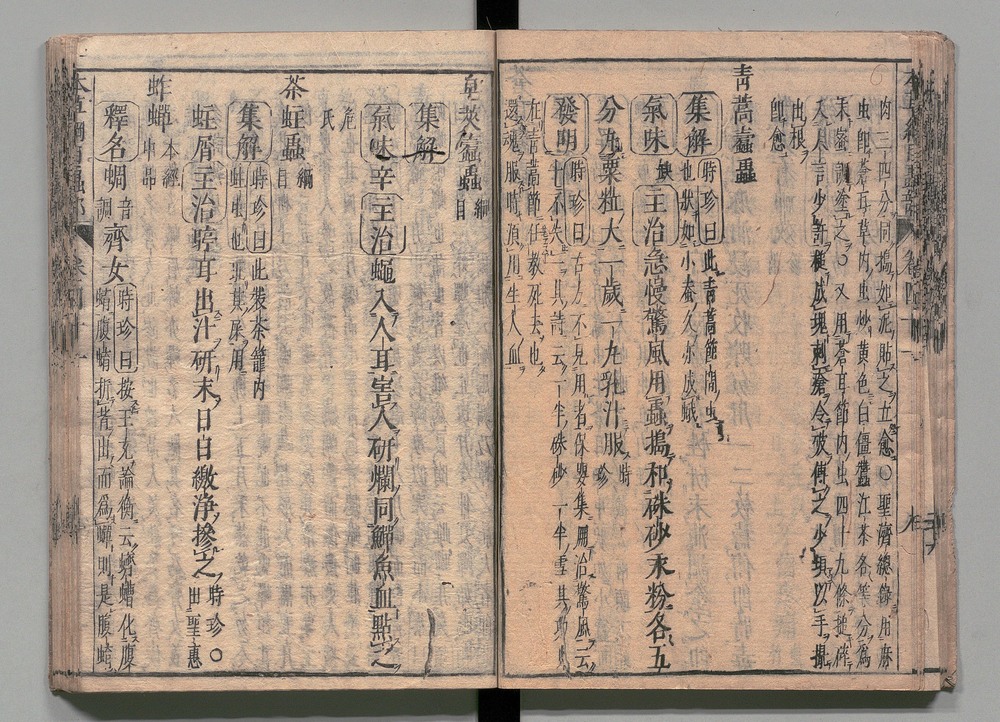 肉三四分同搗如泥貼之立愈○聖濟總錄用麻
虫即蒼耳草內虫炒黃色白僵蠶江茶各等分爲
末蜜調塗之○又用蒼耳節內虫四十九條搥碎
入人言少許
出根
即愈
青蒿蠹蟲
集解時珍曰此青蒿節間虫
也狀如小蠶久亦成蛾
氣味缺主治急慢驚風用蟲搗和硃砂汞粉各五
分丸粟粒大一歲一丸乳汁服時
珍
發明時珍曰古方不見用者保嬰集用治驚風云
十不失一其詩云一半硃砂一半雪其功
在青蒿節任教死去也
還魂服時頂用生人血
皂莢蠹蟲綱
目
集解
氣味辛主治蠅入人耳害人研爛同鱓魚血點之
危
氏
茶蛀蟲綱
目
集解時珍曰此裝茶籠內
蛀虫也取其屎用
蛀屑主治聤耳出汁研末日日繳淨摻之時珍○
出聖惠
蚱蟬本經
中品
釋名蜩音
調齊女時珍曰按王充論衡云蠐螬化腹
蜟拆背出而爲蟬則是腹蜟